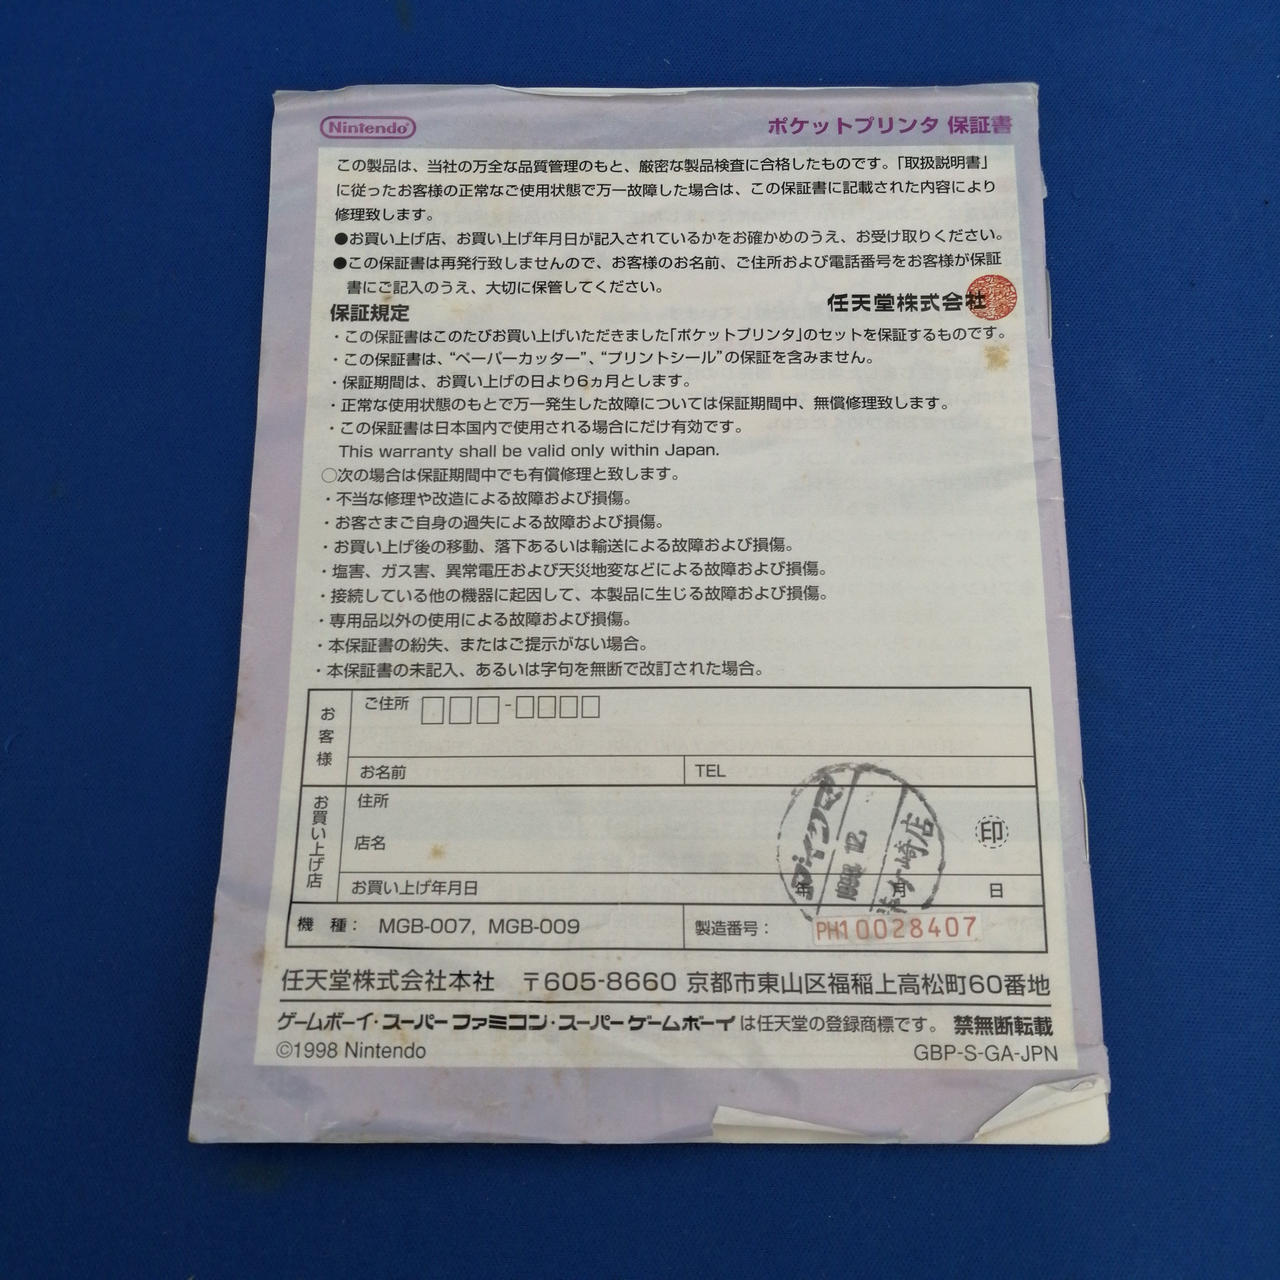 Nintendo
ポケットプリンタ 保証書
この製品は、当社の万全な品質管理のもと、厳密な製品検査に合格したものです。「取扱説明書」
に従ったお客様の正常なご使用状態で万一故障した場合は、この保証書に記載された内容により
修理致します。
●お買い上げ店、お買い上げ年月日が記入されているかをお確かめのうえ、お受け取りください。
●この保証書は再発行致しませんので、お客様のお名前、ご住所および電話番号をお客様が保証
書にご記入のうえ、大切に保管してください。
任天堂株式会社
保証規定
・この保証書はこのたびお買い上げいただきました「ポケットプリンタ」のセットを保証するものです。
・この保証書は、“ペーパーカッター”、“プリントシール”の保証を含みません。
・保証期間は、お買い上げの日より6ヵ月とします。
・正常な使用状態のもとで万一発生した故障については保証期間中、無償修理致します。
・この保証書は日本国内で使用される場合にだけ有効です。
This warranty shall be valid only within Japan.
○次の場合は保証期間中でも有償修理と致します。
・不当な修理や改造による故障および損傷。
・お客さまご自身の過失による故障および損傷。
・お買い上げ後の移動、落下あるいは輸送による故障および損傷。
・塩害、ガス害、異常電圧および天災地変などによる故障および損傷。
・接続している他の機器に起因して、本製品に生じる故障および損傷。
・専用品以外の使用による故障および損傷。
・本保証書の紛失、またはご提示がない場合。
・本保証書の未記入、あるいは字句を無断で改訂された場合。
お客様
ご住所 □□□-□□□□
お名前
TEL
お買い上げ店
住所
店名
印
お買い上げ年月日
年 月 日
1998.12.
崎店
機 種： MGB-007, MGB-009
製造番号： PH10028407
任天堂株式会社本社 〒605-8660 京都市東山区福稲上高松町60番地
ゲームボーイ・スーパーファミコン・スーパーゲームボーイは任天堂の登録商標です。 禁無断転載
©1998 Nintendo
GBP-S-GA-JPN